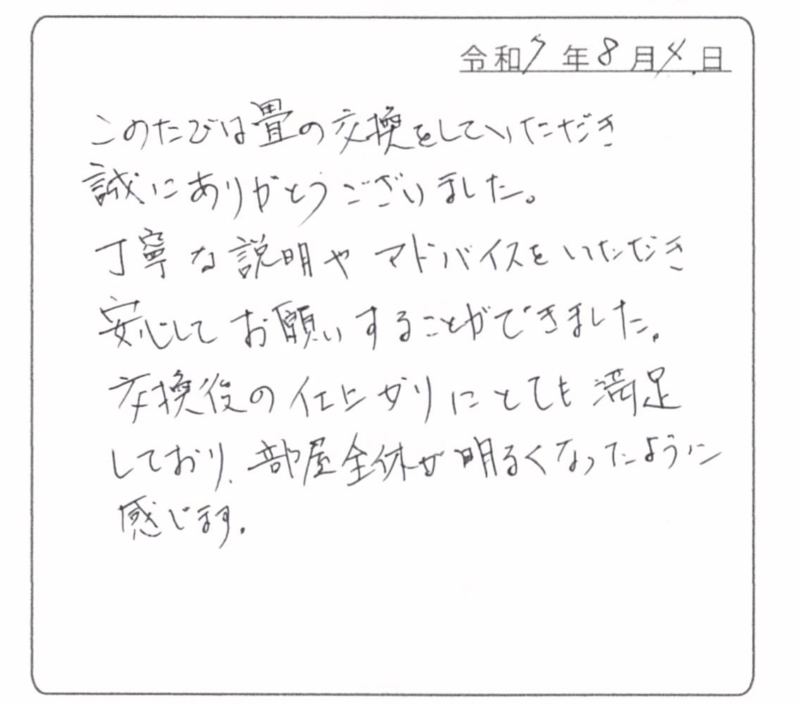 令和7年8月4日
このたびは畳の交換をしていただき
誠にありがとうございました。
丁寧な説明やアドバイスをいただき
安心してお願いすることができました。
交換後の仕上がりにとても満足
しており、部屋全体が明るくなったように
感じます。